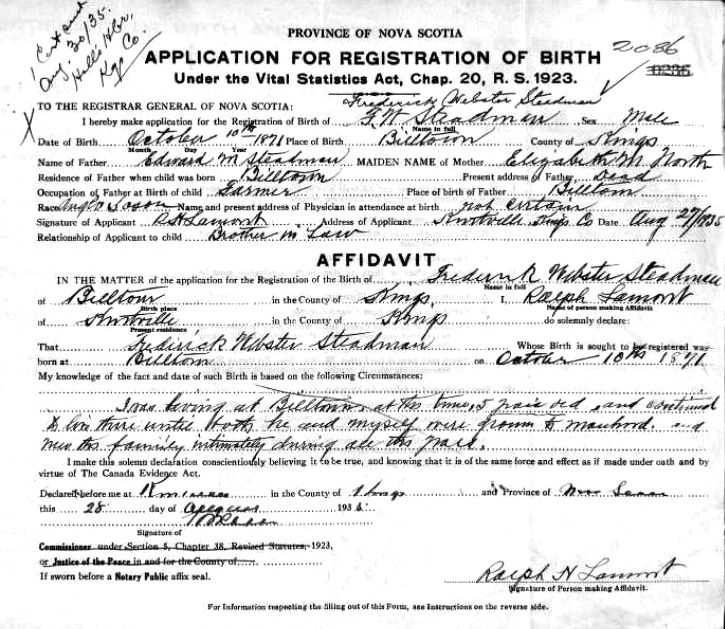 1 Cert and
Aug. 30/35.
Halls Hbr.
Kgs Co.
PROVINCE OF NOVA SCOTIA
APPLICATION FOR REGISTRATION OF BIRTH
2086
0235
Under the Vital Statistics Act, Chap. 20, R. S. 1923.
TO THE REGISTRAR GENERAL OF NOVA SCOTIA:
Frederick Webster Steadman
I hereby make application for the Registration of Birth of F W Steadman Sex Male
Name in full
X Date of Birth October 10th 1871 Place of Birth Billtown County of Kings
Month Day Year
Name of Father Edward M Steadman MAIDEN NAME of Mother Elizabeth M North
Residence of Father when child was born Billtown Present address of Father Dead
Occupation of Father at Birth of child Farmer Place of birth of Father Billtown
Race Anglo Saxon Name and present address of Physician in attendance at birth not certain
Signature of Applicant R H Lamont Address of Applicant Kentville Kings Co Date Aug 27/1935
Relationship of Applicant to child Brother in Law
AFFIDAVIT
IN THE MATTER of the application for the Registration of the Birth of Frederick Webster Steadman
Name in full
of Billtown in the County of Kings, I, Ralph Lamont
Birth place Name of person making Affidavit
of Kentville in the County of Kings do solemnly declare:
Present residence
That Frederick Webster Steadman Whose Birth is sought to be registered was
born at Billtown on October 10th 1871
My knowledge of the fact and date of such Birth is based on the following Circumstances:
I was living at Billtown at the time, 5 years old, and continued
to live there until both he and myself were grown to manhood and
knew the family intimately during all the years.
I make this solemn declaration conscientiously believing it to be true, and knowing that it is of the same force and effect as if made under oath and by
virtue of The Canada Evidence Act.
Declared before me at in the County of Kings and Province of Nova Scotia
this 28 day of August 1935.
Signature of
Commissioner under Section 5, Chapter 38, Revised Statutes, 1923,
or Justice of the Peace in and for the County of
If sworn before a Notary Public affix seal.
Ralph H Lamont
Signature of Person making Affidavit.
For Information respecting the filling out of this Form, see Instructions on the reverse side.